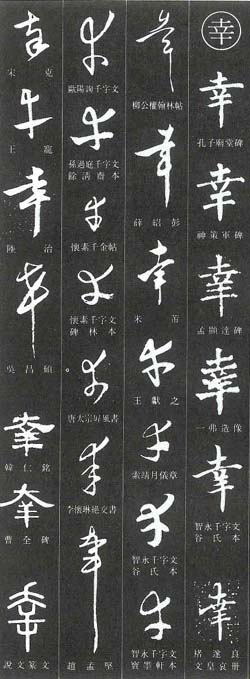 幸
幸
孔子廟堂碑
幸
神策軍碑
幸
孟顯達碑
幸
一弗造像
幸
智永千字文
谷氏本
幸
褚遂良
文皇哀册
幸
柳公權翰林帖
幸
薛紹彭
幸
米芾
幸
王獻之
幸
索靖月儀章
幸
智永千字文
谷氏本
幸
智永千字文
寶墨軒本
幸
歐陽詢千字文
幸
孫過庭千字文
餘清齋本
幸
懷素千金帖
幸
懷素千字文
碑林本
幸
唐太宗屏風書
幸
李懷琳絕交書
幸
趙孟堅
幸
宋克
幸
王寵
幸
陸治
幸
吳昌碩
幸
韓仁銘
幸
曹全碑
幸
說文篆文